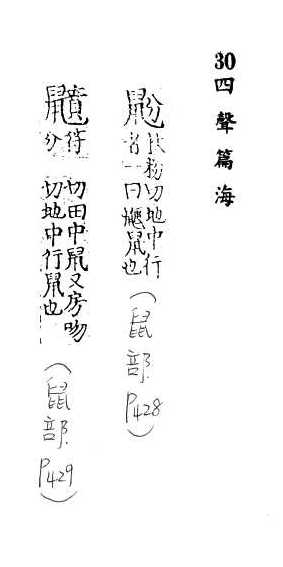 30四聲篇海
鼢扶粉切地中行
者一曰鼴鼠也（鼠部P428）
符分切田中鼠又房吻
切地中行鼠也（鼠部P429）